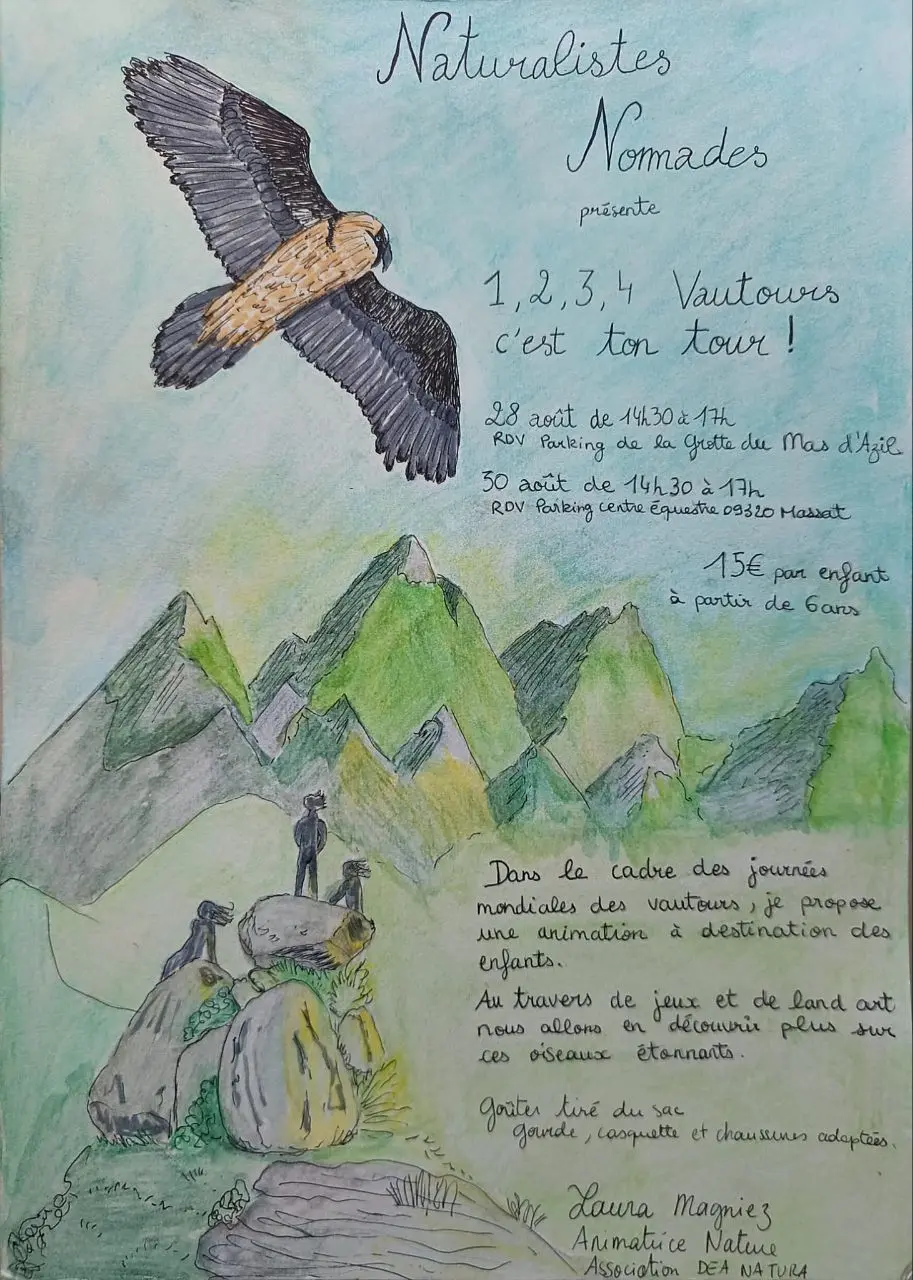 Naturalistes
Nomades
présente
1,2,3,4 Vautours
c'est ton tour !
28 août de 14h30 à 17h
RDV Parking de la Grotte du Mas d'Azil
30 août de 14h30 à 17h
RDV Parking centre équestre 09320 Massat
15€ par enfant
à partir de 6 ans
Dans le cadre des journées
mondiales des vautours, je propose
une animation à destination des
enfants.
Au travers de jeux et de land art
nous allons en découvrir plus sur
ces oiseaux étonnants.
Goûter tiré du sac
gourde, casquette et chaussures adaptées.
Laura Magniez
Animatrice Nature
Association DEA NATURA